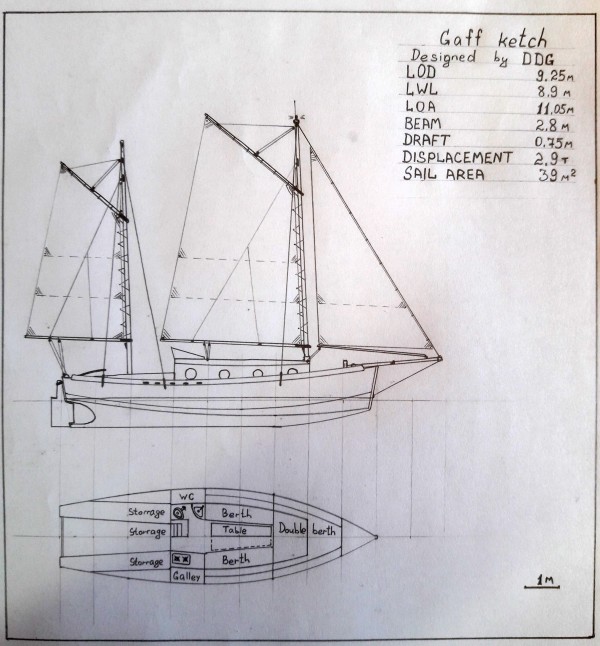 Gaff ketch
Designed by DDG
LOD 9,25м
LWL 8,9 м
LOA 11,05м
BEAM 2,8 м
DRAFT 0,75м
DISPLACEMENT 2,9т
SAIL AREA 39 м²
WC
Storrage Berth
Storrage Table Double berth
Storrage Berth
Galley
1м